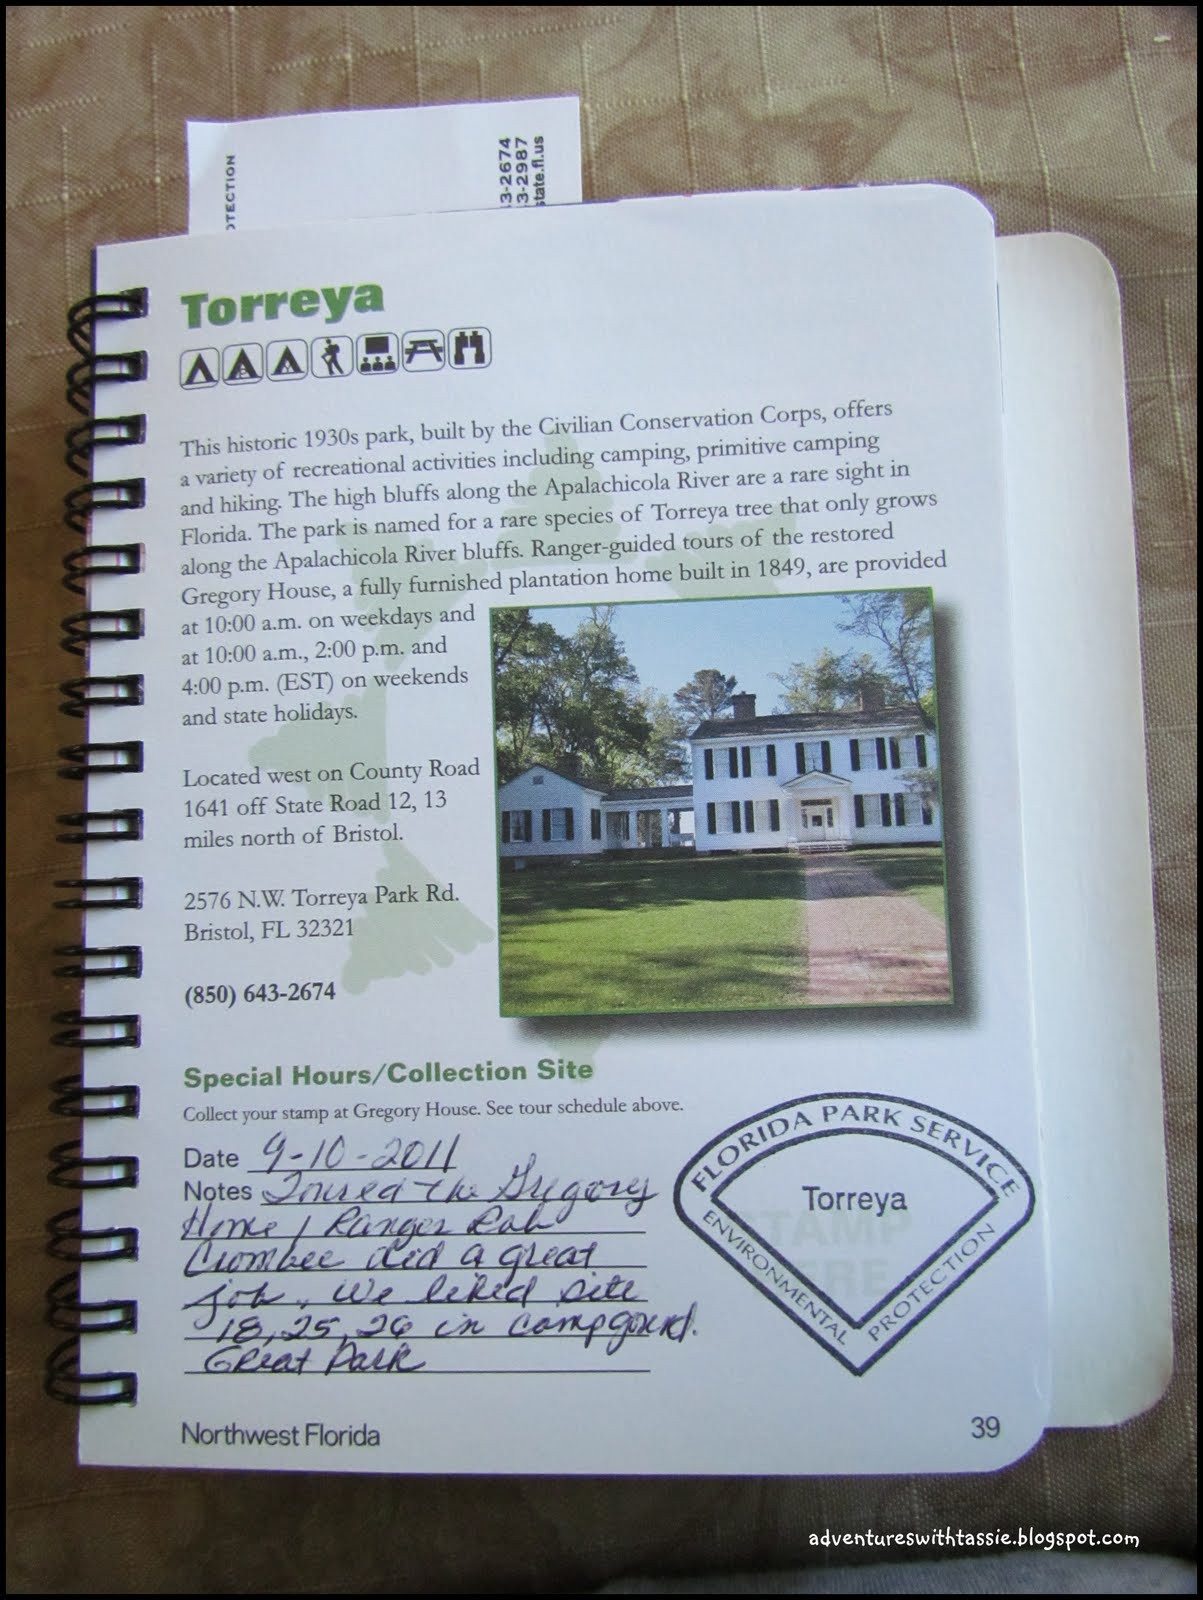 OTECTION
3-2674
3-2987
state.fl.us
Torreya
This historic 1930s park, built by the Civilian Conservation Corps, offers
a variety of recreational activities including camping, primitive camping
and hiking. The high bluffs along the Apalachicola River are a rare sight in
Florida. The park is named for a rare species of Torreya tree that only grows
along the Apalachicola River bluffs. Ranger-guided tours of the restored
Gregory House, a fully furnished plantation home built in 1849, are provided
at 10:00 a.m. on weekdays and
at 10:00 a.m., 2:00 p.m. and
4:00 p.m. (EST) on weekends
and state holidays.
Located west on County Road
1641 off State Road 12, 13
miles north of Bristol.
2576 N.W. Torreya Park Rd.
Bristol, FL 32321
(850) 643-2674
Special Hours/Collection Site
Collect your stamp at Gregory House. See tour schedule above.
Date 9-10-2011
Notes Toured the Gregory
Home / Ranger Rob
Crombee did a great
job. We liked site
18, 25, 26 in campground.
Great Park
FLORIDA PARK SERVICE
Torreya
STAMP
HERE
ENVIRONMENTAL PROTECTION
Northwest Florida
39
adventureswithtassie.blogspot.com